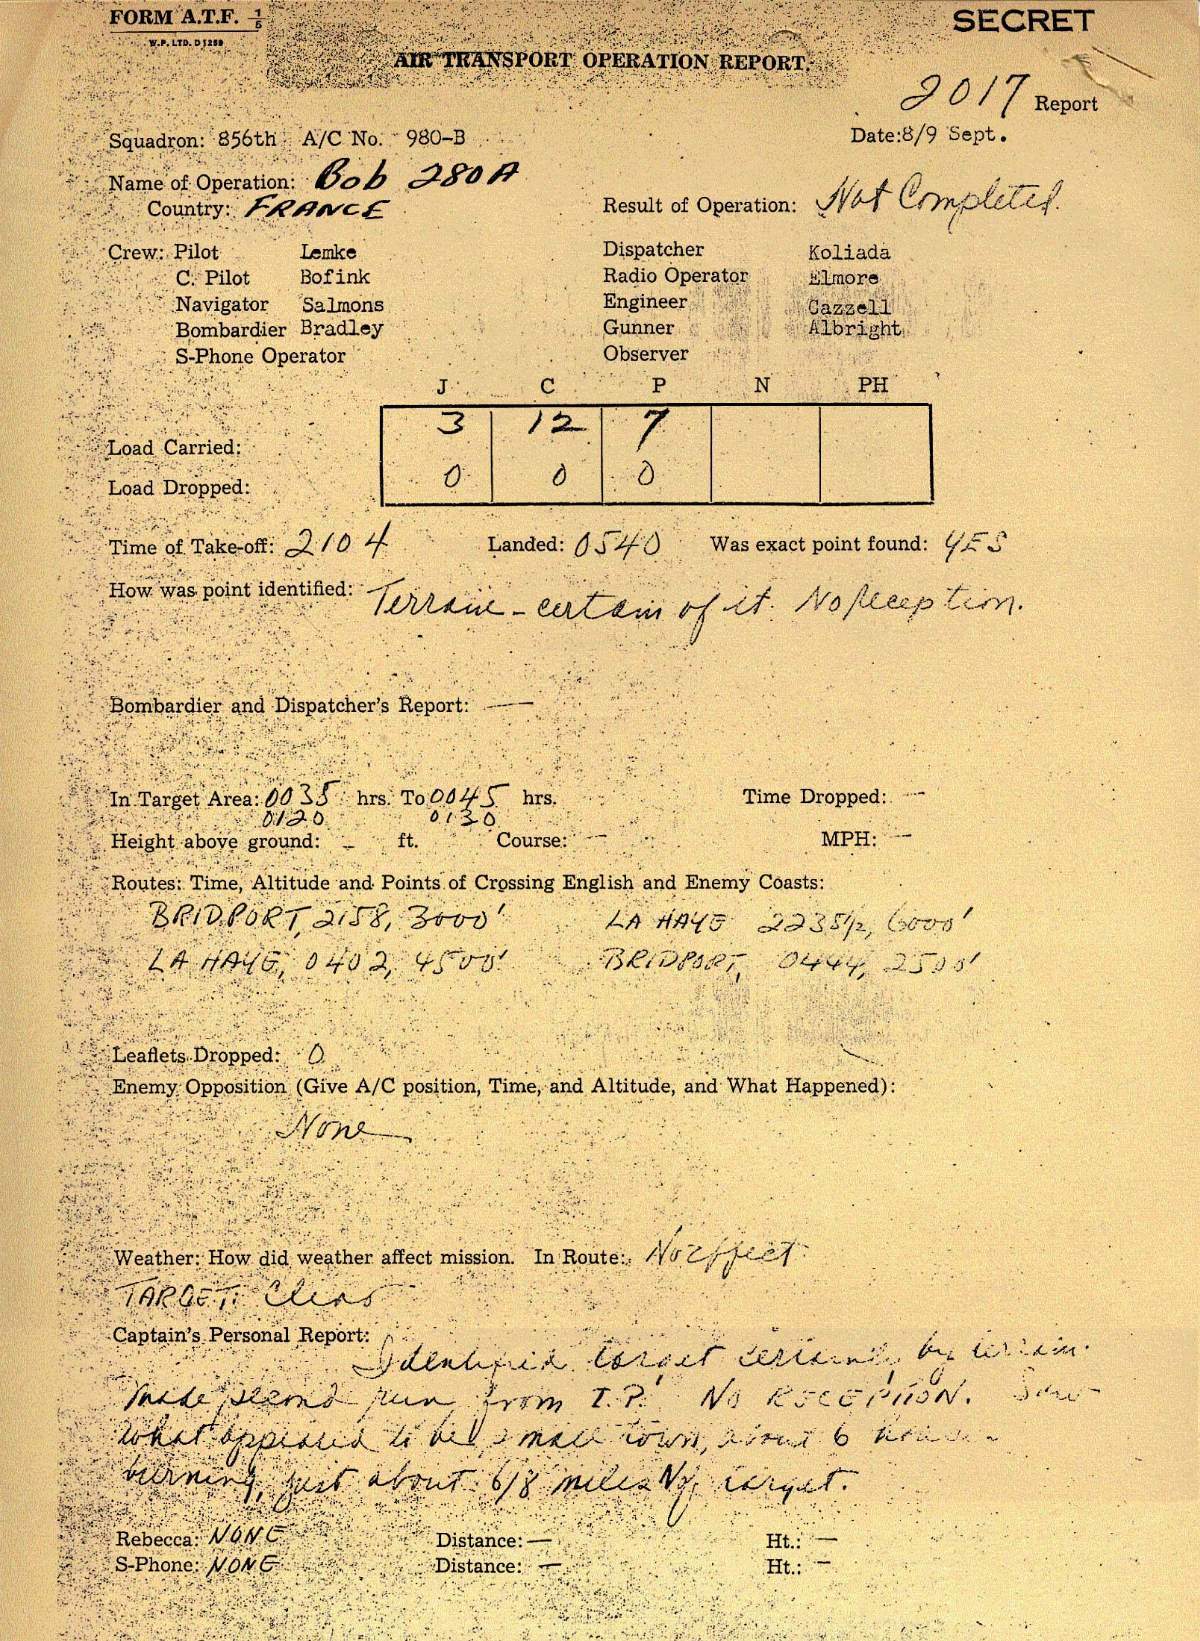 FORM A.T.F. 1/5
SECRET
W.P. LTD. D1259
AIR TRANSPORT OPERATION REPORT.
2017 Report
Squadron: 856th A/C No. 980-B Date:8/9 Sept.
Name of Operation: Bob 280A
Country: FRANCE Result of Operation: Not Completed.
Crew: Pilot Lemke Dispatcher Koliada
C. Pilot Bofink Radio Operator Elmore
Navigator Salmons Engineer Cazzell
Bombardier Bradley Gunner Albright
S-Phone Operator Observer
J C P N PH
Load Carried: 3 12 7
Load Dropped: 0 0 0
Time of Take-off: 2104 Landed: 0540 Was exact point found: YES
How was point identified: Terrain - certain of it. No Reception.
Bombardier and Dispatcher's Report: —
In Target Area: 0035 hrs. To 0045 hrs. Time Dropped: —
0120 0130
Height above ground: – ft. Course: — MPH: —
Routes: Time, Altitude and Points of Crossing English and Enemy Coasts:
BRIDPORT, 2158, 3000' LA HAYE 2235½, 6000'
LA HAYE, 0402, 4500' BRIDPORT, 0444, 2500'
Leaflets Dropped: 0
Enemy Opposition (Give A/C position, Time, and Altitude, and What Happened):
None
Weather: How did weather affect mission. In Route: No effect
TARGET: Clear
Captain's Personal Report: Identified target certainly by terrain.
Made second run from I.P. NO RECEPTION. Saw
what appeared to be small town, about 6
burning, just about 6/8 miles N of target.
Rebecca: NONE Distance: — Ht.: —
S-Phone: NONE Distance: — Ht.: —